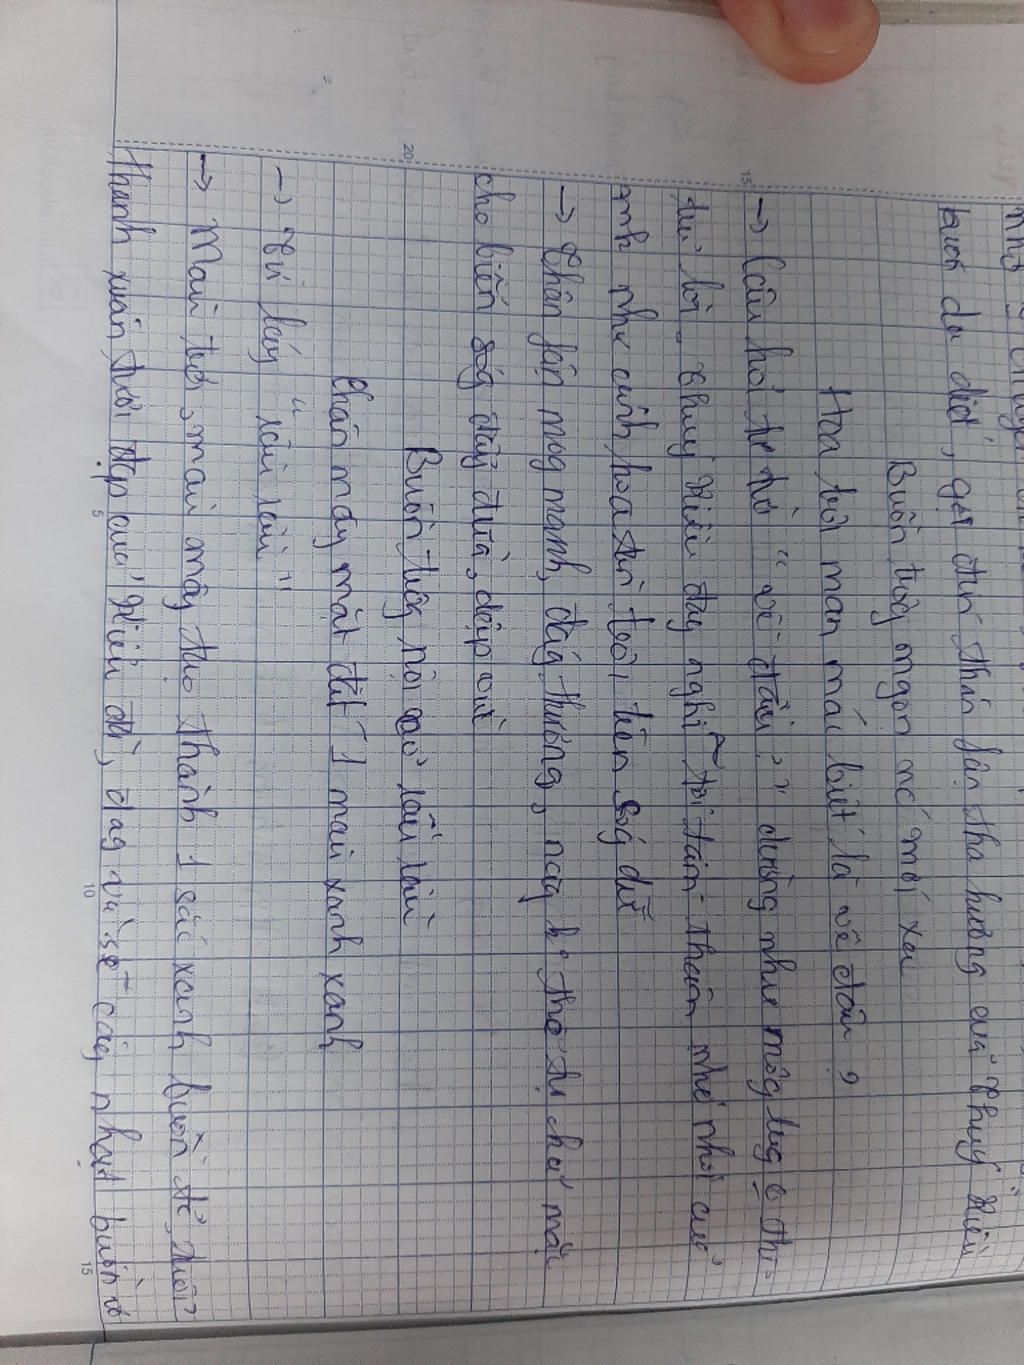 buồn da diết, gợi đến thân fận tha hương của Thuý Kiều
Buồn trôg ngọn nc' mới xa
Hoa trôi man mác biết là về đâu?
→ Câu hỏi tu từ "về đâu?" dường như môg lug o thi
dư lời. Thuý Kiều đag nghĩ tới tâm thân nhỏ nhoi của
mh như cánh hoa trôi trên sóg dữ
→ Thân fận mog manh, đág thương, nay k° thể tự chủ mặc
cho biến sóg đẩy đưa, dập vùi
Buồn trôg nội cỏ rầu rầu
Chân mây mặt đất 1 màu xanh xanh
→ Từ láy "rầu rầu"
→ Màu cỏ, màu mây tạo thành 1 sắc xanh buồn tẻ, tuổi
thanh xuân tươi đẹp của Kiều đã, đag và sẽ càg nhạt
20
15
5
10
15